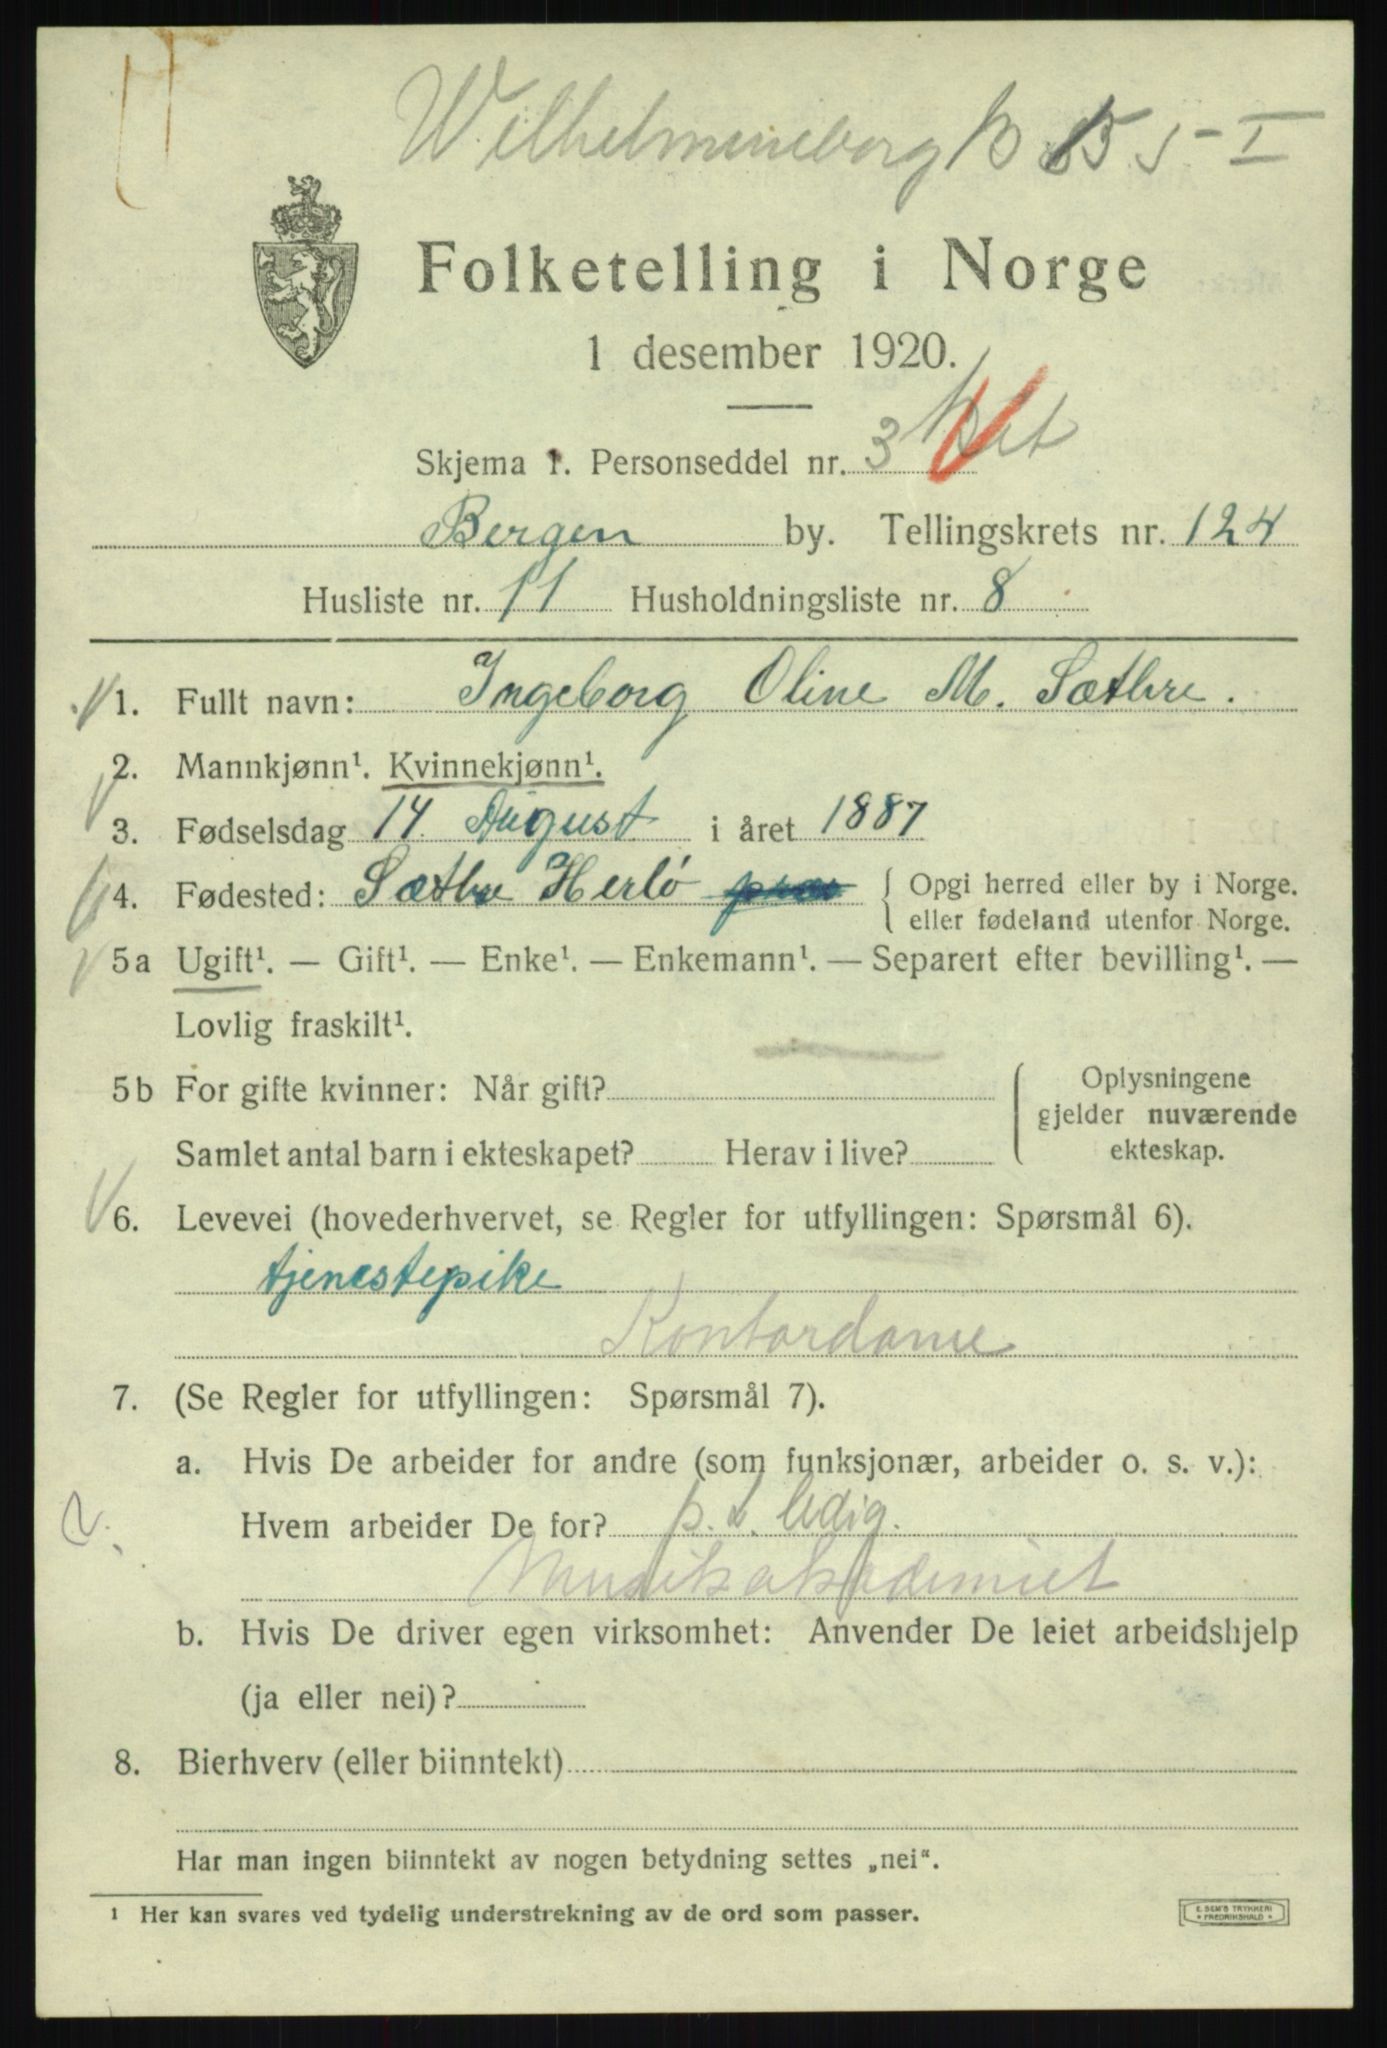 Wilhelmineborg
Folketelling i Norge
1 desember 1920.
Skjema 1. Personseddel nr. 3
Bergen by. Tellingskrets nr. 124
Husliste nr. 11 Husholdningsliste nr. 8
1. Fullt navn: Ingeborg Oline M. Sæthre.
2. Mannkjønn¹. Kvinnekjønn¹.
3. Fødselsdag 14 August i året 1887
4. Fødested: Sæthre Herlö { Opgi herred eller by i Norge.
eller fødeland utenfor Norge.
5a Ugift¹. — Gift¹. — Enke¹. — Enkemann¹. — Separert efter bevilling¹. —
Lovlig fraskilt¹.
5b For gifte kvinner: Når gift?
Oplysningene
gjelder nuværende
ekteskap.
Samlet antal barn i ekteskapet? Herav i live?
6. Levevei (hovederhvervet, se Regler for utfyllingen: Spørsmål 6).
tjenestepike
Kontordame
7. (Se Regler for utfyllingen: Spørsmål 7).
a. Hvis De arbeider for andre (som funksjonær, arbeider o. s. v.):
Hvem arbeider De for? p. t. ledig.
Musikakademiet
b. Hvis De driver egen virksomhet: Anvender De leiet arbeidshjelp
(ja eller nei)?
8. Bierhverv (eller biinntekt)
Har man ingen biinntekt av nogen betydning settes „nei“.
¹ Her kan svares ved tydelig understrekning av de ord som passer.
E. SEM'S TRYKKERI
• FREDRIKSHALD •